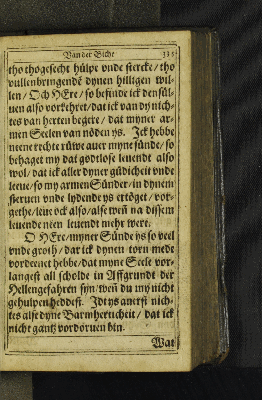 Van der Bicht
tho thogesecht hülpe vnde stercke / tho
vullenbringende dynen hilligen wil-
len / Och HEre / so befinde ick den sül-
uen also vorkehret / dat ick van dy nich-
tes van herten begere / dat myner ar-
men Seelen van nöden ys. Ick hebbe
neene rechte rüwe auer myne sünde / so
behaget my dat godtlose leuendt also
wol / dat ick aller dyner güdicheit vnde
leue / so my armen Sünder / in dynem
steruen vnde lydende ys ertöget / vor-
gethe / leue ock also / alse weñ na dissem
leuende neen leuendt mehr were.
O HEre / myner Sünde ys so veel
vnde groth / dar ick dynen torn mede
vordeenet hebbe / dat myne Seele vor-
langest all scholde in Affgrundt der
Hellen gefahren syn / weñ du my nicht
gehulpen heddest. Idt ys anerst nich-
tes alse dyne Barmherticheit / dat ick
nicht gantz vordoruen bin.
Wat